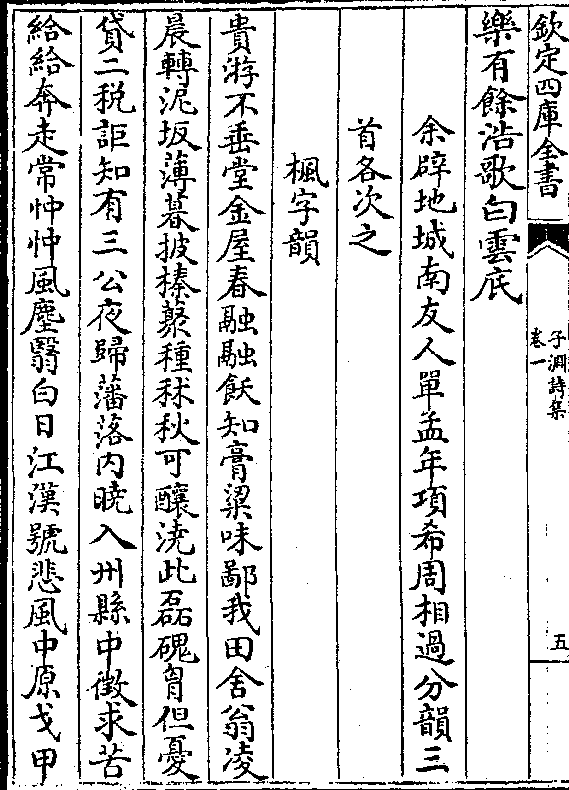 欽定四庫全書
子淵詩集
卷一
五
樂有餘浩歌白雲底
余辟地城南友人單孟年項希周相過分韻三
首各次之
楓字韻
貴游不垂堂金屋春融融飫知膏粱味鄙我田舍翁凌
晨轉泥坂薄暮披榛藂種秫秋可釀澆此磊磈胷但憂
貸二税詎知有三公夜歸藩落内曉入州縣中徴求苦
給給奔走常忡忡風塵翳白日江漢號悲風中原戈甲